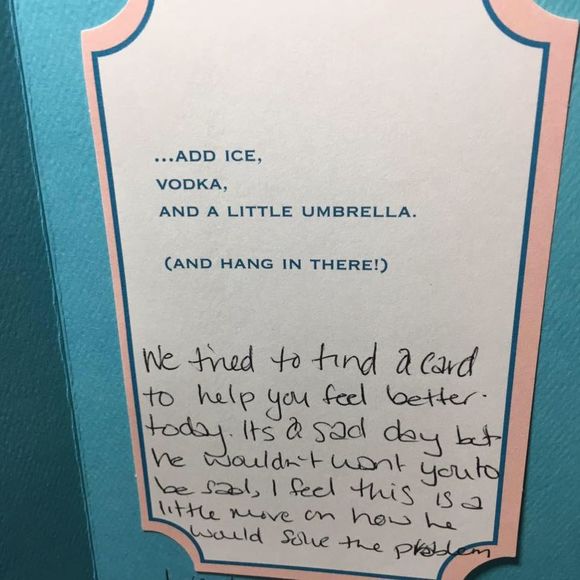 ...ADD ICE,
VODKA,
AND A LITTLE UMBRELLA.
(AND HANG IN THERE!)
We tried to find a card
to help you feel better.
today. Its a sad day but
he wouldn't want you to
be sad, I feel this is a
little more on how he
would solve the problem